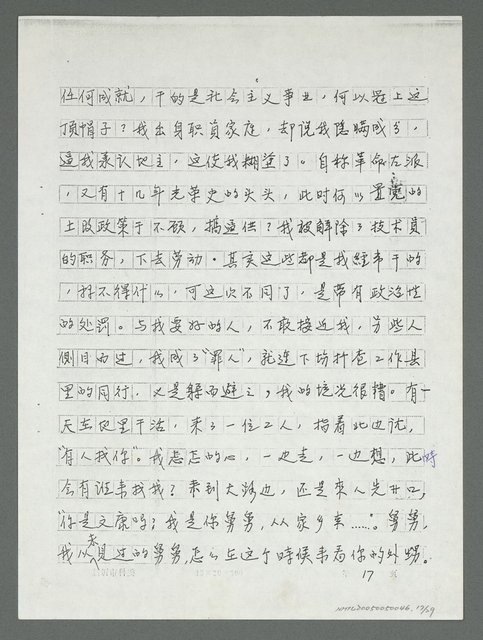 任何成就，干的是社会主义事业，何以冠上这
顶帽子？我出身职員家庭，却说我隐瞒成分，
逼我承认地主，这使我糊塗了。自称革命左派
，又有十几年光荣史的头头，此时何以置党的
土改政策于不顾，搞逼供？我被解除了技术員
的职务，下去劳动。其实这些都是我经常干的
，算不得什么，可这次不同了，是带有政治性
的处罚。与我要好的人，不敢接近我，另些人
侧目而过，我成了“罪人”，就连下场检查工作县
里的同行，也是躲而避之，我的境况很糟。有一
天在地里干活，来了一位工人，指着北边说，
“有人找你”。我忐忑的心，一边走，一边想，此時
会有谁来找我？来到大路边，还是来人先开口，
“你是文康吗？我是你舅舅，从家乡来……。舅舅，
我从未見过的舅舅，怎么在这个時候来看你的外甥。
17
NMTLD0050050046. 17/59